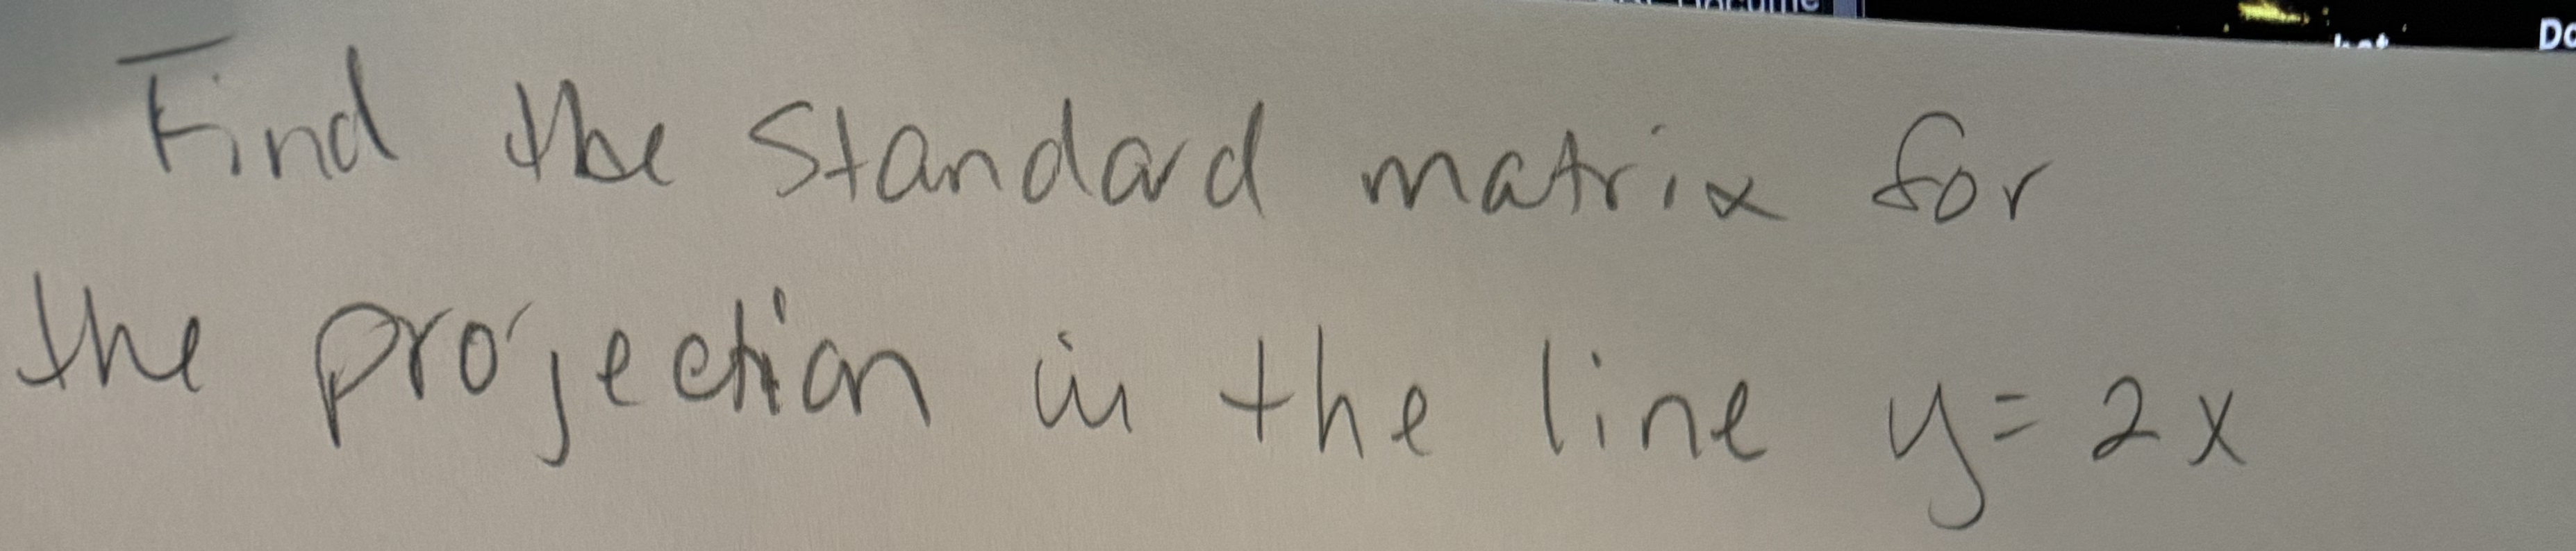 Docume
Do
Find the standard matrix for
the projection in the line y = 2x